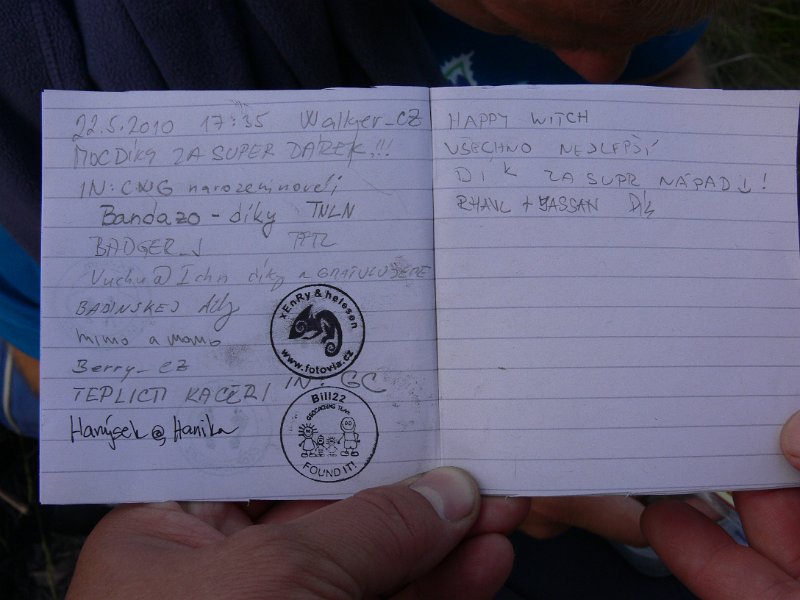 22.5.2010 17:35 Walker_CZ
MOC Díky ZA SUPER DÁREK!!!
IN: CWG narozeninové
Bandazo - díky TNLN
BADGER_J TFTC
díky a GRATULUJEME
BADINSKEJ díky
mimo a momo
Berry_cz
TEPLICTI KAČEŘI IN: GC
Hanýsek @ Hanika
xEnRy & helesen
www.fotovia.cz
Bill22
GEOCACHING TEAM
FOUND IT!
HAPPY WITCH
VŠECHNO NEJLEPŠÍ
DÍK ZA SUPR NÁPAD!
+ JASSAN Dík